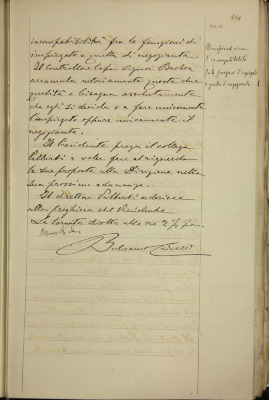 incompatibilità fra le funzioni di
impiegato e quella di negoziante.
Il Controllore Capo Signor Bacher
accumula notoriamente queste due
qualità e bisogna assolutamente
che egli si decida o a fare unicamente
l'impiegato oppure unicamente il
negoziante.
Il Presidente prega il collega
Paltarti a voler fare al riguardo
le sue proposte alla Direzione nella
sua prossima adunanza.
Il direttore Paltarti aderisce
alla preghiera del Presidente.
La seduta è tolta alle ore 2 1/2 pom.
l'incompatibilità
fra le funzioni d'impiegato
e quella di negoziante